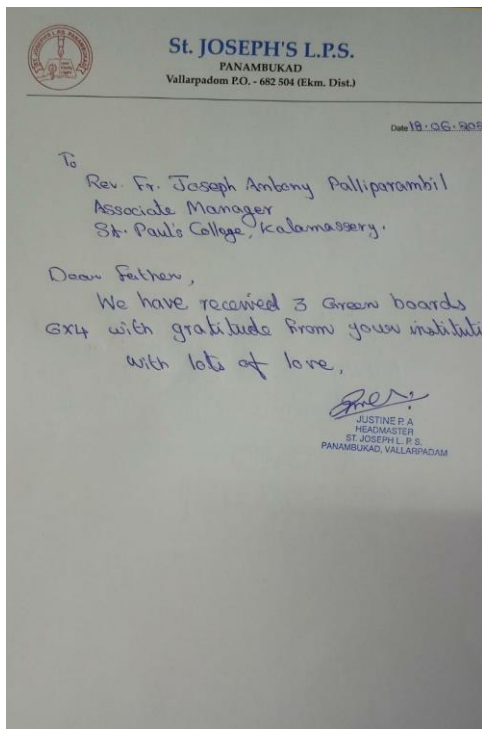 St. JOSEPH'S L.P.S.
PANAMBUKAD
Vallarpadom P.O. - 682 504 (Ekm. Dist.)
Date 18-06-
To
Rev. Fr. Joseph Antony Palliparambil
Associate Manager
St. Paul's College, Kalamassery.
Dear Father,
We have received 3 Green boards
6x4 with gratitude from your instituti
with lots of love,
JUSTINE P. A
HEADMASTER
ST. JOSEPH L. P. S.
PANAMBUKAD, VALLARPADAM